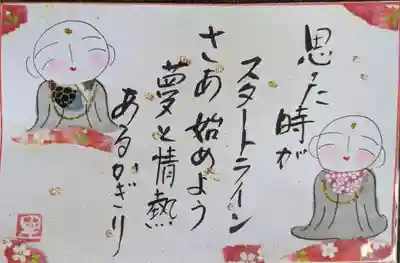 思った時が
スタートライン
さあ始めよう
夢と情熱
あるかぎり